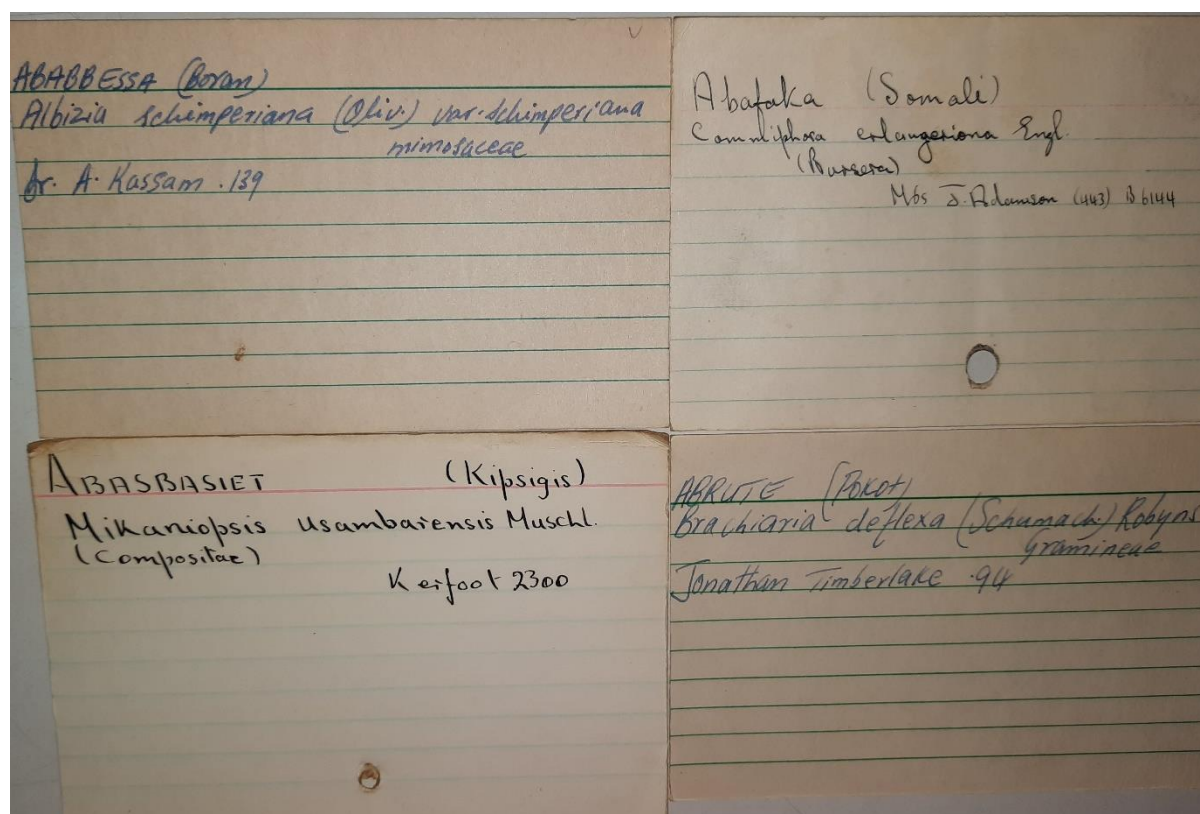 ABABBESSA (Boran)
Albizia schimperiana (Oliv.) var. schimperiana
mimosaceae
Dr. A. Kassam . 139
Abafaka (Somali)
Commiphora erlangeriana Engl.
(Bursera)
Mbs J. Adamson (443) B 6144
ABASBASIET (Kipsigis)
Mikaniopsis usambarensis Muschl.
(Compositae)
Kerfoot 2300
ABRUTE (Pokot)
Brachiaria deflexa (Schumach.) Robyns
Gramineae
Jonathan Timberlake . 94